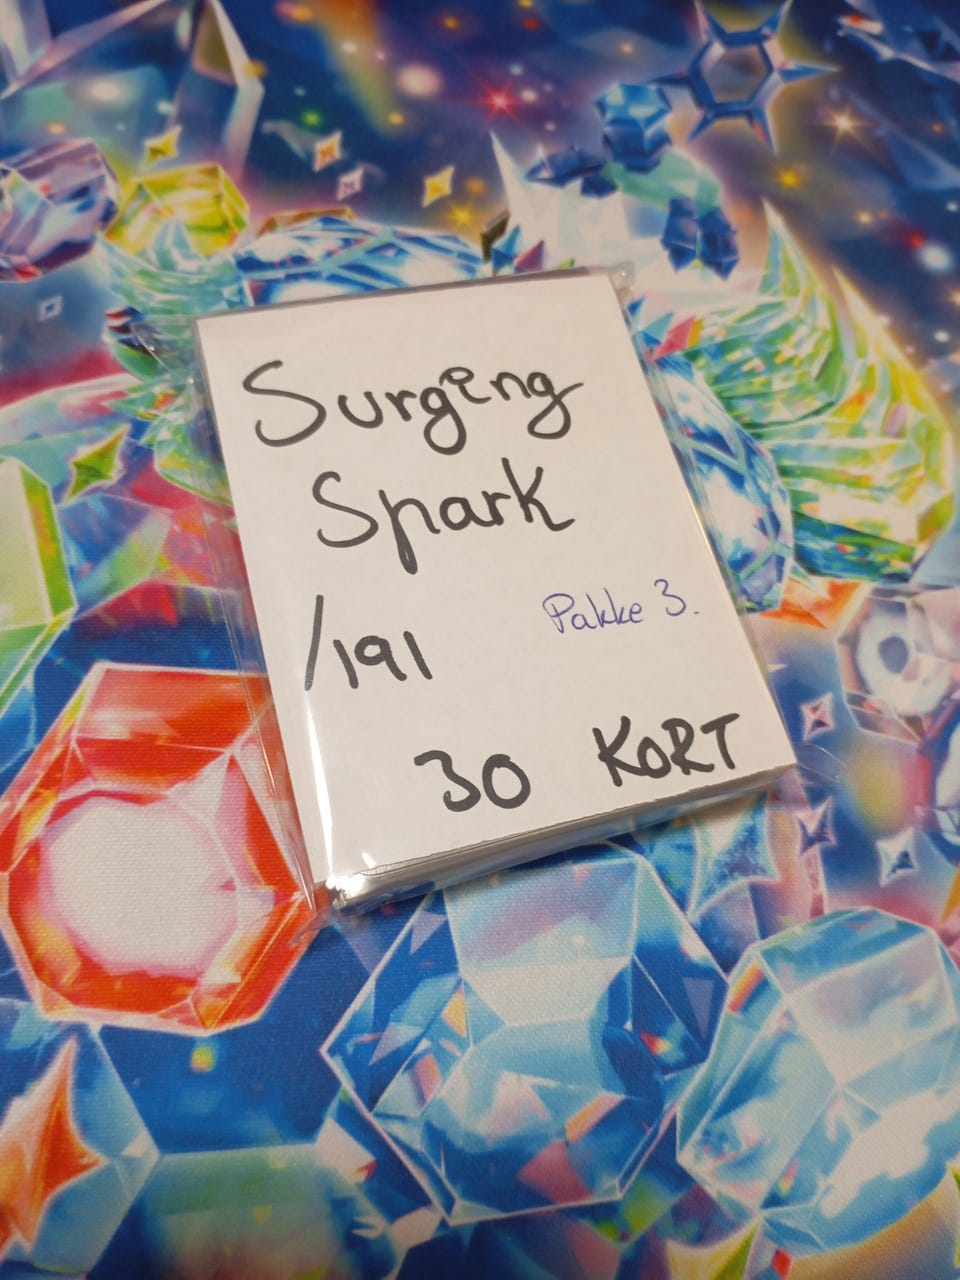 Surging
Spark
/191
Pakke 3.
30 KORT